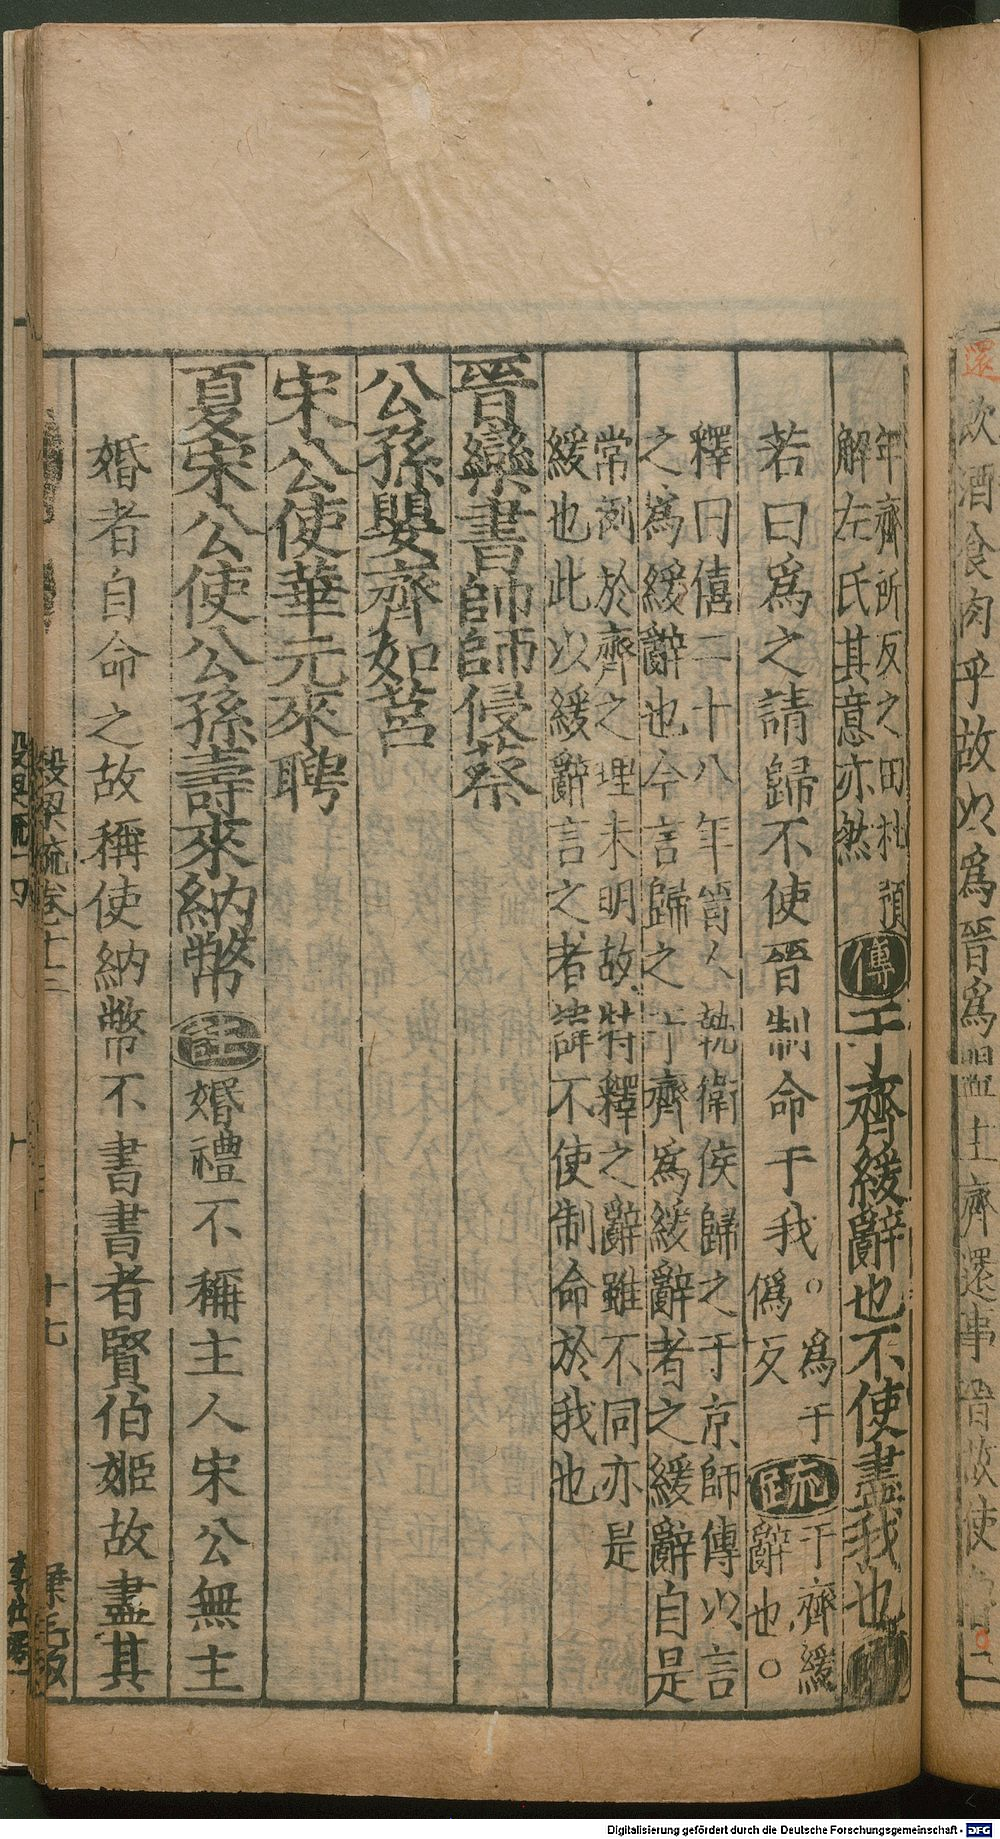 飲酒食肉乎故以為晉為盟主齊還事晉故使
還
年齊所反之田杜預
解左氏其意亦然
傳于齊緩辭也不使盡我也
若曰為之請歸不使晉制命于我。為于
偽反
疏于齊緩
辭也。
釋曰僖二十八年晉人執衛侯歸之于京師傳以言
之為緩辭也今言歸之于齊為緩辭者之緩辭自是
常例於齊之理未明故特釋之辭雖不同亦是
緩也此以緩辭言之者請不使制命於我也
晉欒書帥師侵蔡
公孫嬰齊如莒
宋公使華元來聘
夏宋公使公孫壽來納幣註婚禮不稱主人宋公無主
婚者自命之故稱使納幣不書書者賢伯姬故盡其
穀梁疏卷十三
十七
Digitalisierung gefördert durch die Deutsche Forschungsgemeinschaft - DFG